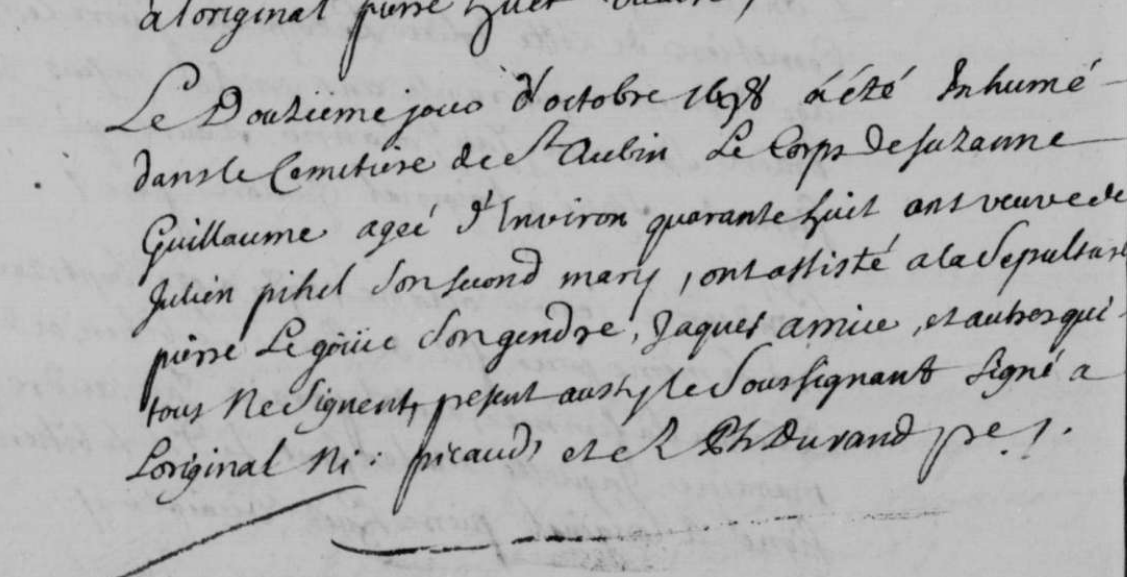 à l'original pierre huet
Le Douzieme jour d'octobre 1698 à été Inhumé
dans le Cemetiere de St Aubin Le Corps de suzanne
Guillaume ageé d'Environ quarante huit ans veuve de
Julien pihel Son second mary, ont assisté a la Sepulture
pierre Le goüic Son gendre, Jaques amice, et autres qui
tous Ne Signent, pesent aussy le Soussignant Signé a
Loriginal Ni: picaud, et Ph Durand pre